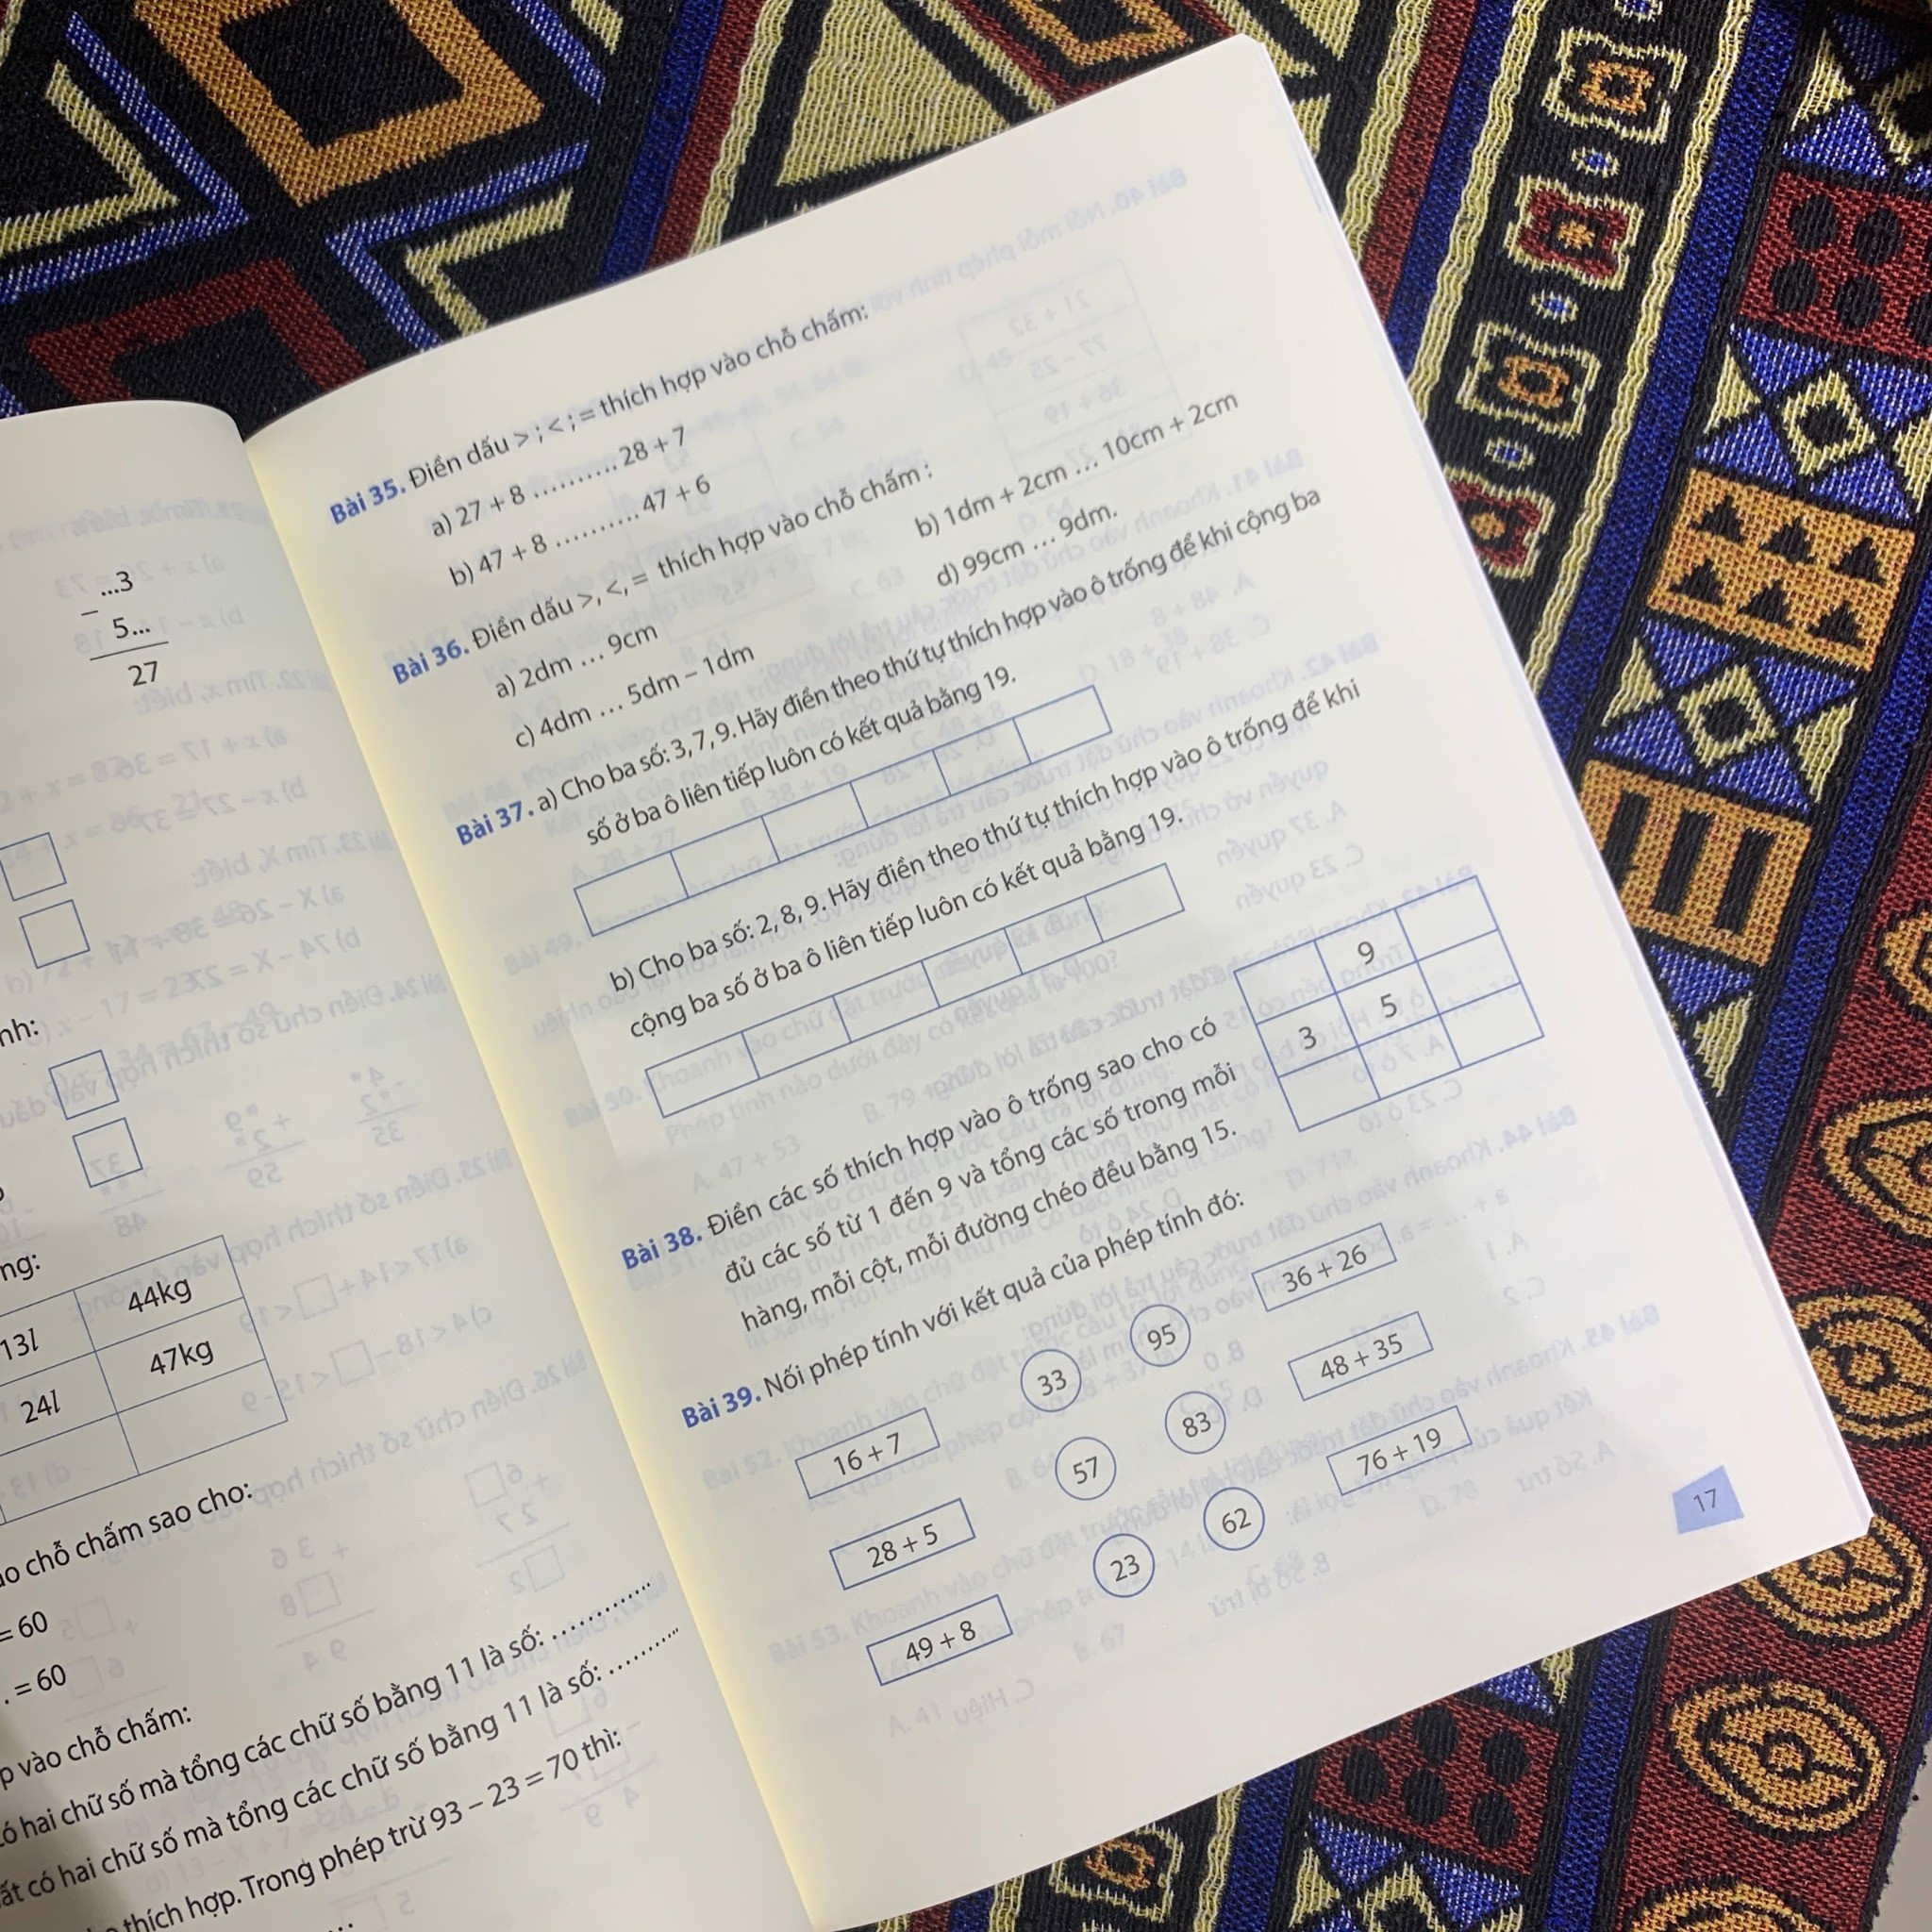 ...3
–
5...
27
nh:
ng:
13l 44kg
24l 47kg
chỗ chấm sao cho:
= 60
. = 60
vào chỗ chấm:
có hai chữ số mà tổng các chữ số bằng 11 là số: ............
có hai chữ số mà tổng các chữ số bằng 11 là số: ..........
thích hợp. Trong phép trừ 93 – 23 = 70 thì:
Bài 35. Điền dấu > ; < ; = thích hợp vào chỗ chấm:
a) 27 + 8 .......... 28 + 7
b) 47 + 8 .......... 47 + 6
Bài 36. Điền dấu >, <, = thích hợp vào chỗ chấm :
a) 2dm ... 9cm b) 1dm + 2cm ... 10cm + 2cm
c) 4dm ... 5dm – 1dm d) 99cm ... 9dm.
Bài 37. a) Cho ba số: 3, 7, 9. Hãy điền theo thứ tự thích hợp vào ô trống để khi cộng ba
số ở ba ô liên tiếp luôn có kết quả bằng 19.
b) Cho ba số: 2, 8, 9. Hãy điền theo thứ tự thích hợp vào ô trống để khi
cộng ba số ở ba ô liên tiếp luôn có kết quả bằng 19.
Bài 38. Điền các số thích hợp vào ô trống sao cho có
đủ các số từ 1 đến 9 và tổng các số trong mỗi
hàng, mỗi cột, mỗi đường chéo đều bằng 15.
9
3 5
Bài 39. Nối phép tính với kết quả của phép tính đó:
16 + 7 33 95 36 + 26
28 + 5 57 83 48 + 35
49 + 8 23 62 76 + 19
17